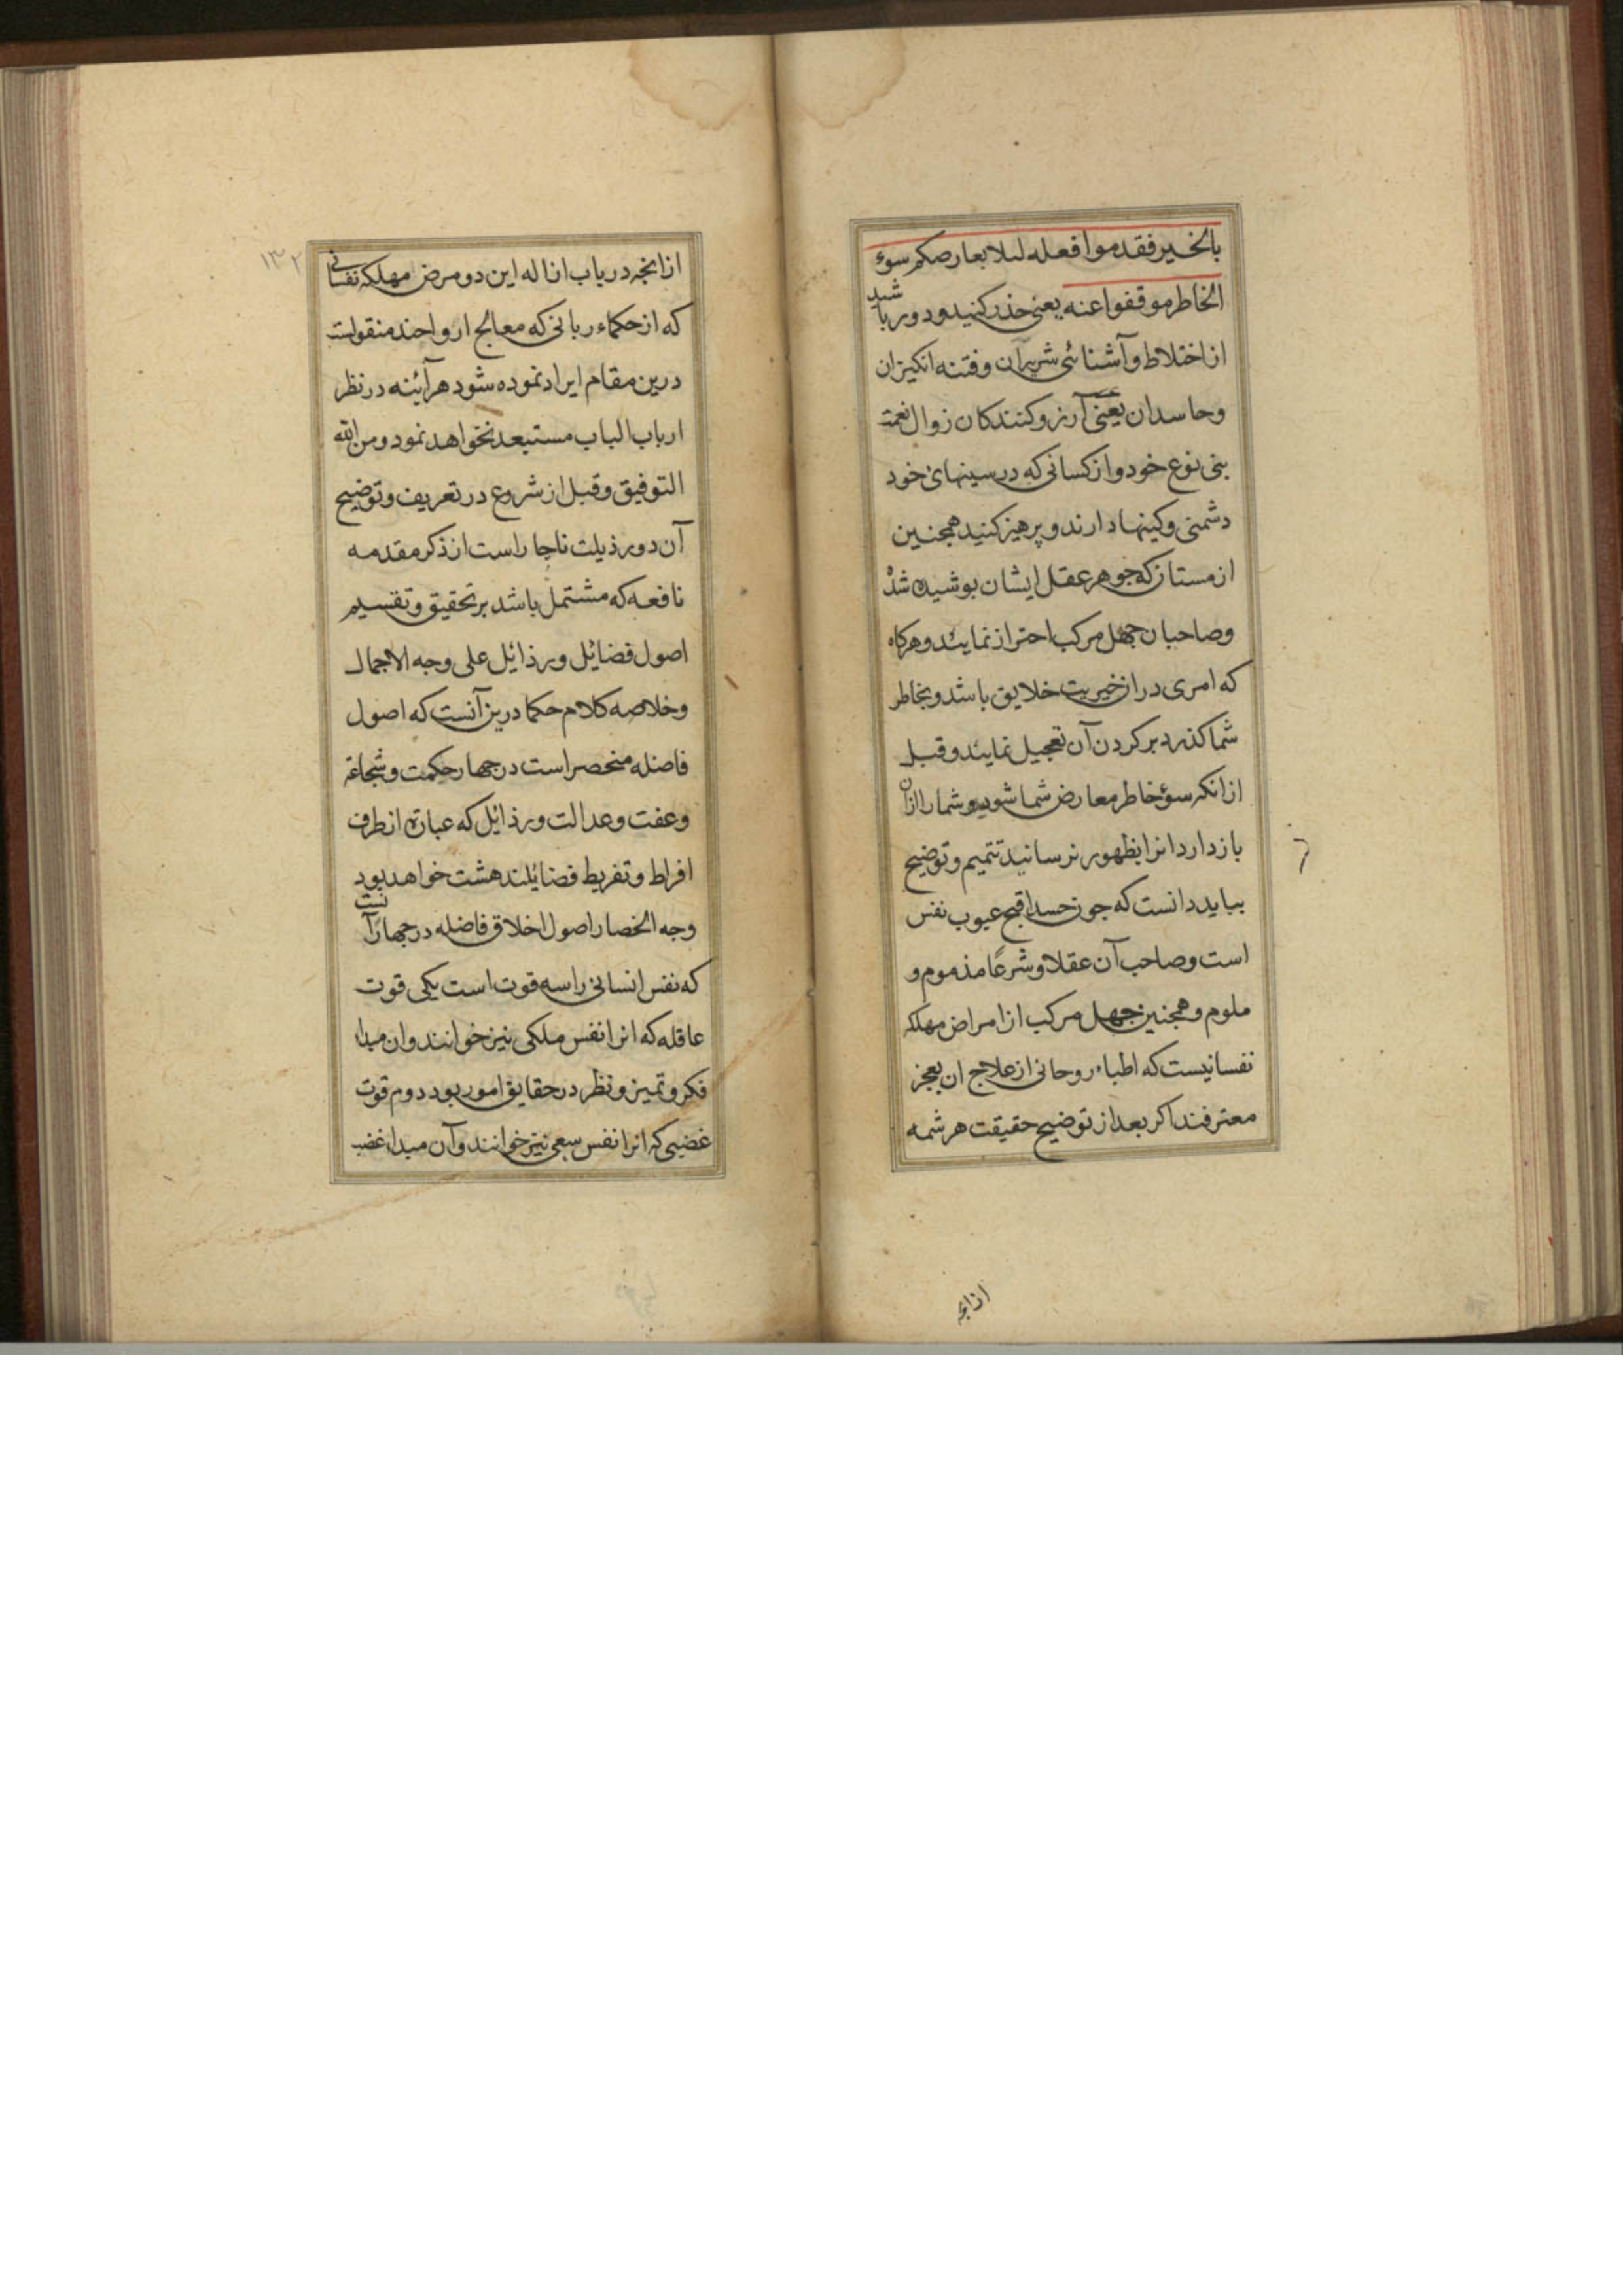 بالخير فقدموا فعله لئلا يعارضكم سوء
الخاطر موقفوا عنه يعنی حذر کنید و دور باشید
از اختلاط و آشنائی شریران و فتنه انکیزان
و حاسدان یعنی آرزو کنندکان زوال نعمت
بنی نوع خود و از کسانی که در سینهای خود
دشمنی و کینها دارند و پرهیز کنید همچنین
از مستان که جوهر عقل ایشان بوشیده شده
و صاحبان جهل مرکب احتراز نمایند و هرکاه
که امری در آن خیریت خلایق باشد و بخاطر
شما کذرد بر کردن آن تعجیل نمایند و قبل
از انکه سوء خاطر معارض شما شود و شما را ازان
باز دارد انرا بظهور رسانید تتمیم و توضیح
بباید دانست که جون حسد اقبح عیوب نفس
است و صاحب آن عقلا و شرعًا مذموم و
ملوم و همجنین جهل مرکب از امراض مهلکه
نفسانیست که اطباء روحانی از علاج ان بعجز
معترفند اکر بعد از توضیح حقیقت هر شمه
ازانجه
۱۳۲
ازانجه در باب ازاله این دو مرض مهلکه نفسانی
که از حکماء ربانی که معالج ارواحند منقولست
درین مقام ایراد نموده شود هرآئینه در نظر
ارباب الباب مستبعد نخواهد نمود و من الله
التوفیق و قبل از شروع در تعریف و توضیح
آن دو رذیلت ناچار است از ذکر مقدمه
نافعه که مشتمل باشد بر تحقیق و تقسیم
اصول فضائل و رذائل علی وجه الاجمال
و خلاصه کلام حکما درین آنست که اصول
فاضله منحصر است در جهار حکمت و شجاعة
و عفت و عدالت و رذائل که عبارة از طرف
افراط و تفریط فضائلند هشت خواهد بود
وجه انحصار اصول اخلاق فاضله در جهار آنست
که نفس انسانی را سه قوت است یکی قوت
عاقله که انرا نفس ملکی نیز خوانند و ان مبدا
فکر و تمیز و نظر در حقایق امور بود دوم قوت
غضبی که انرا نفس سبعی نیز خوانند و آن مبدا غضب